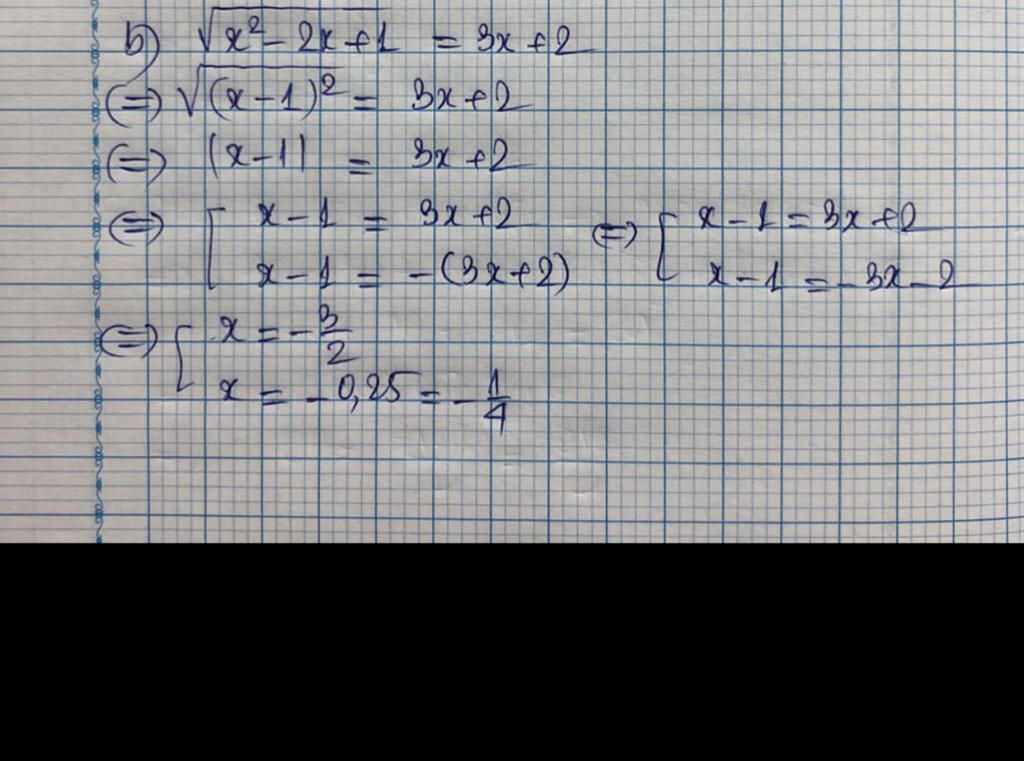 b) √(x² - 2x + 1) = 3x + 2
(=) √((x - 1)²) = 3x + 2
(=) |x - 1| = 3x + 2
(=) [ x - 1 = 3x + 2 (=) [ x - 1 = 3x + 2
x - 1 = -(3x + 2) x - 1 = -3x - 2
(=) [ x = -3/2
x = -0,25 = -1/4